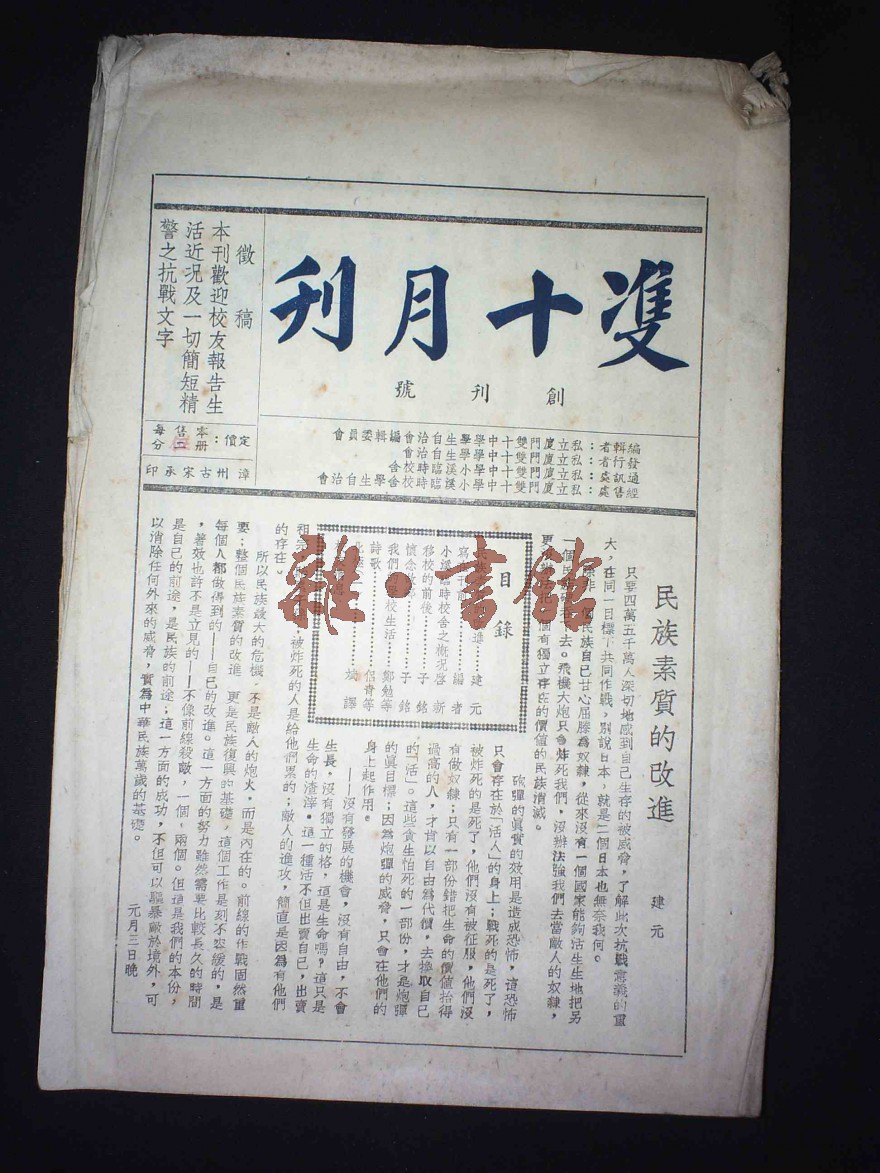 雙十月刊
創刊號
徵稿
本刊歡迎校友報告生
活近况及一切簡短精
警之抗戰文字
定價：零售
每册二分
漳州古宋承印
編輯者：私立廈門雙十中學學生自治會編輯委員會
發行者：私立廈門雙十中學學生自治會
通訊處：私立廈門雙十中學小溪臨時校舍
經售處：私立廈門雙十中學小溪臨時校舍學生自治會
民族素質的改進
建元
只要四萬五千萬人深切地感到自己生存的被威脅，了解此次抗戰意義的重
大，在同一目標下共同作戰，別說日本，就是二個日本也無奈我何。
民族自己甘心屈膝為奴隸，從來沒有一個國家能夠活生生地把另
一個民族 去。飛機大炮只會炸死我們，沒辦法強我們去當敵人的奴隸，
更 個有獨立存在的價值的民族消滅。
砲彈的眞實的效用是造成恐怖，這恐怖
只會存在於「活人」的身上；戰死的是死了，
被炸死的是死了，他們沒有被征服，他們沒
有做奴隸；只有一部份錯把生命的價值抬得
過高的人，才肯以自由為代價，去換取自己
的「活」。這些貪生怕死的一部份，才是炮彈
的眞目標；因為炮彈的威脅，只會在他們的
身上起作用。
——沒有發展的機會，沒有自由，不會
生長，沒有獨立的格，這是生命嗎？這只是
生命的渣滓。這一種活不但出賣自己，出賣
祖宗 被炸死的人是給他們累的；敵人的進攻，簡直是因為有他們
的存在。
所以民族最大的危機，不是敵人的炮火，而是內在的。前線的作戰固然重
要；整個民族素質的改進，更是民族復興的基礎，這個工作是刻不容緩的，是
每個人都做得到的——自己的改進。這一方面的努力雖然需要比較長久的時間
，著效也許不是立見的——不像前線殺敵，一個，兩個。但這是我們的本份，
是自己的前途，是民族的前途；這一方面的成功，不但可以驅暴敵於境外，可
以消除任何外來的威脅，實為中華民族萬歲的基礎。
元月三日晚
目錄
進……建元
寫 刊前……編者
小溪臨時校舍之槪况……啓新
移校的前後……子銘
懷念 ……子銘
我們 校生活……鄭勉等
詩歌……侶青等
斌譯
雜·書館